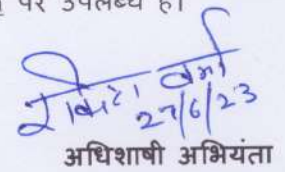 पर उपलब्ध है।
वर्मा
27/6/23
अधिशाषी अभियंता